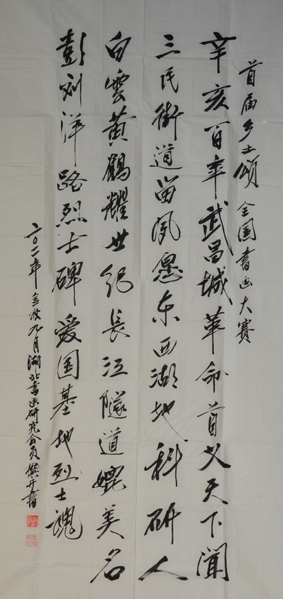 首届乡土颂全国书画大赛
辛亥百年武昌城革命首义天下闻
三民街道留夙愿东西湖地科研人
白雲黄鹤耀世纪长江隧道媲美名
彭刘洋路烈士碑爱国基地烈士魂
二〇一一年金秋九月湖北书画研究会会员樊丹书